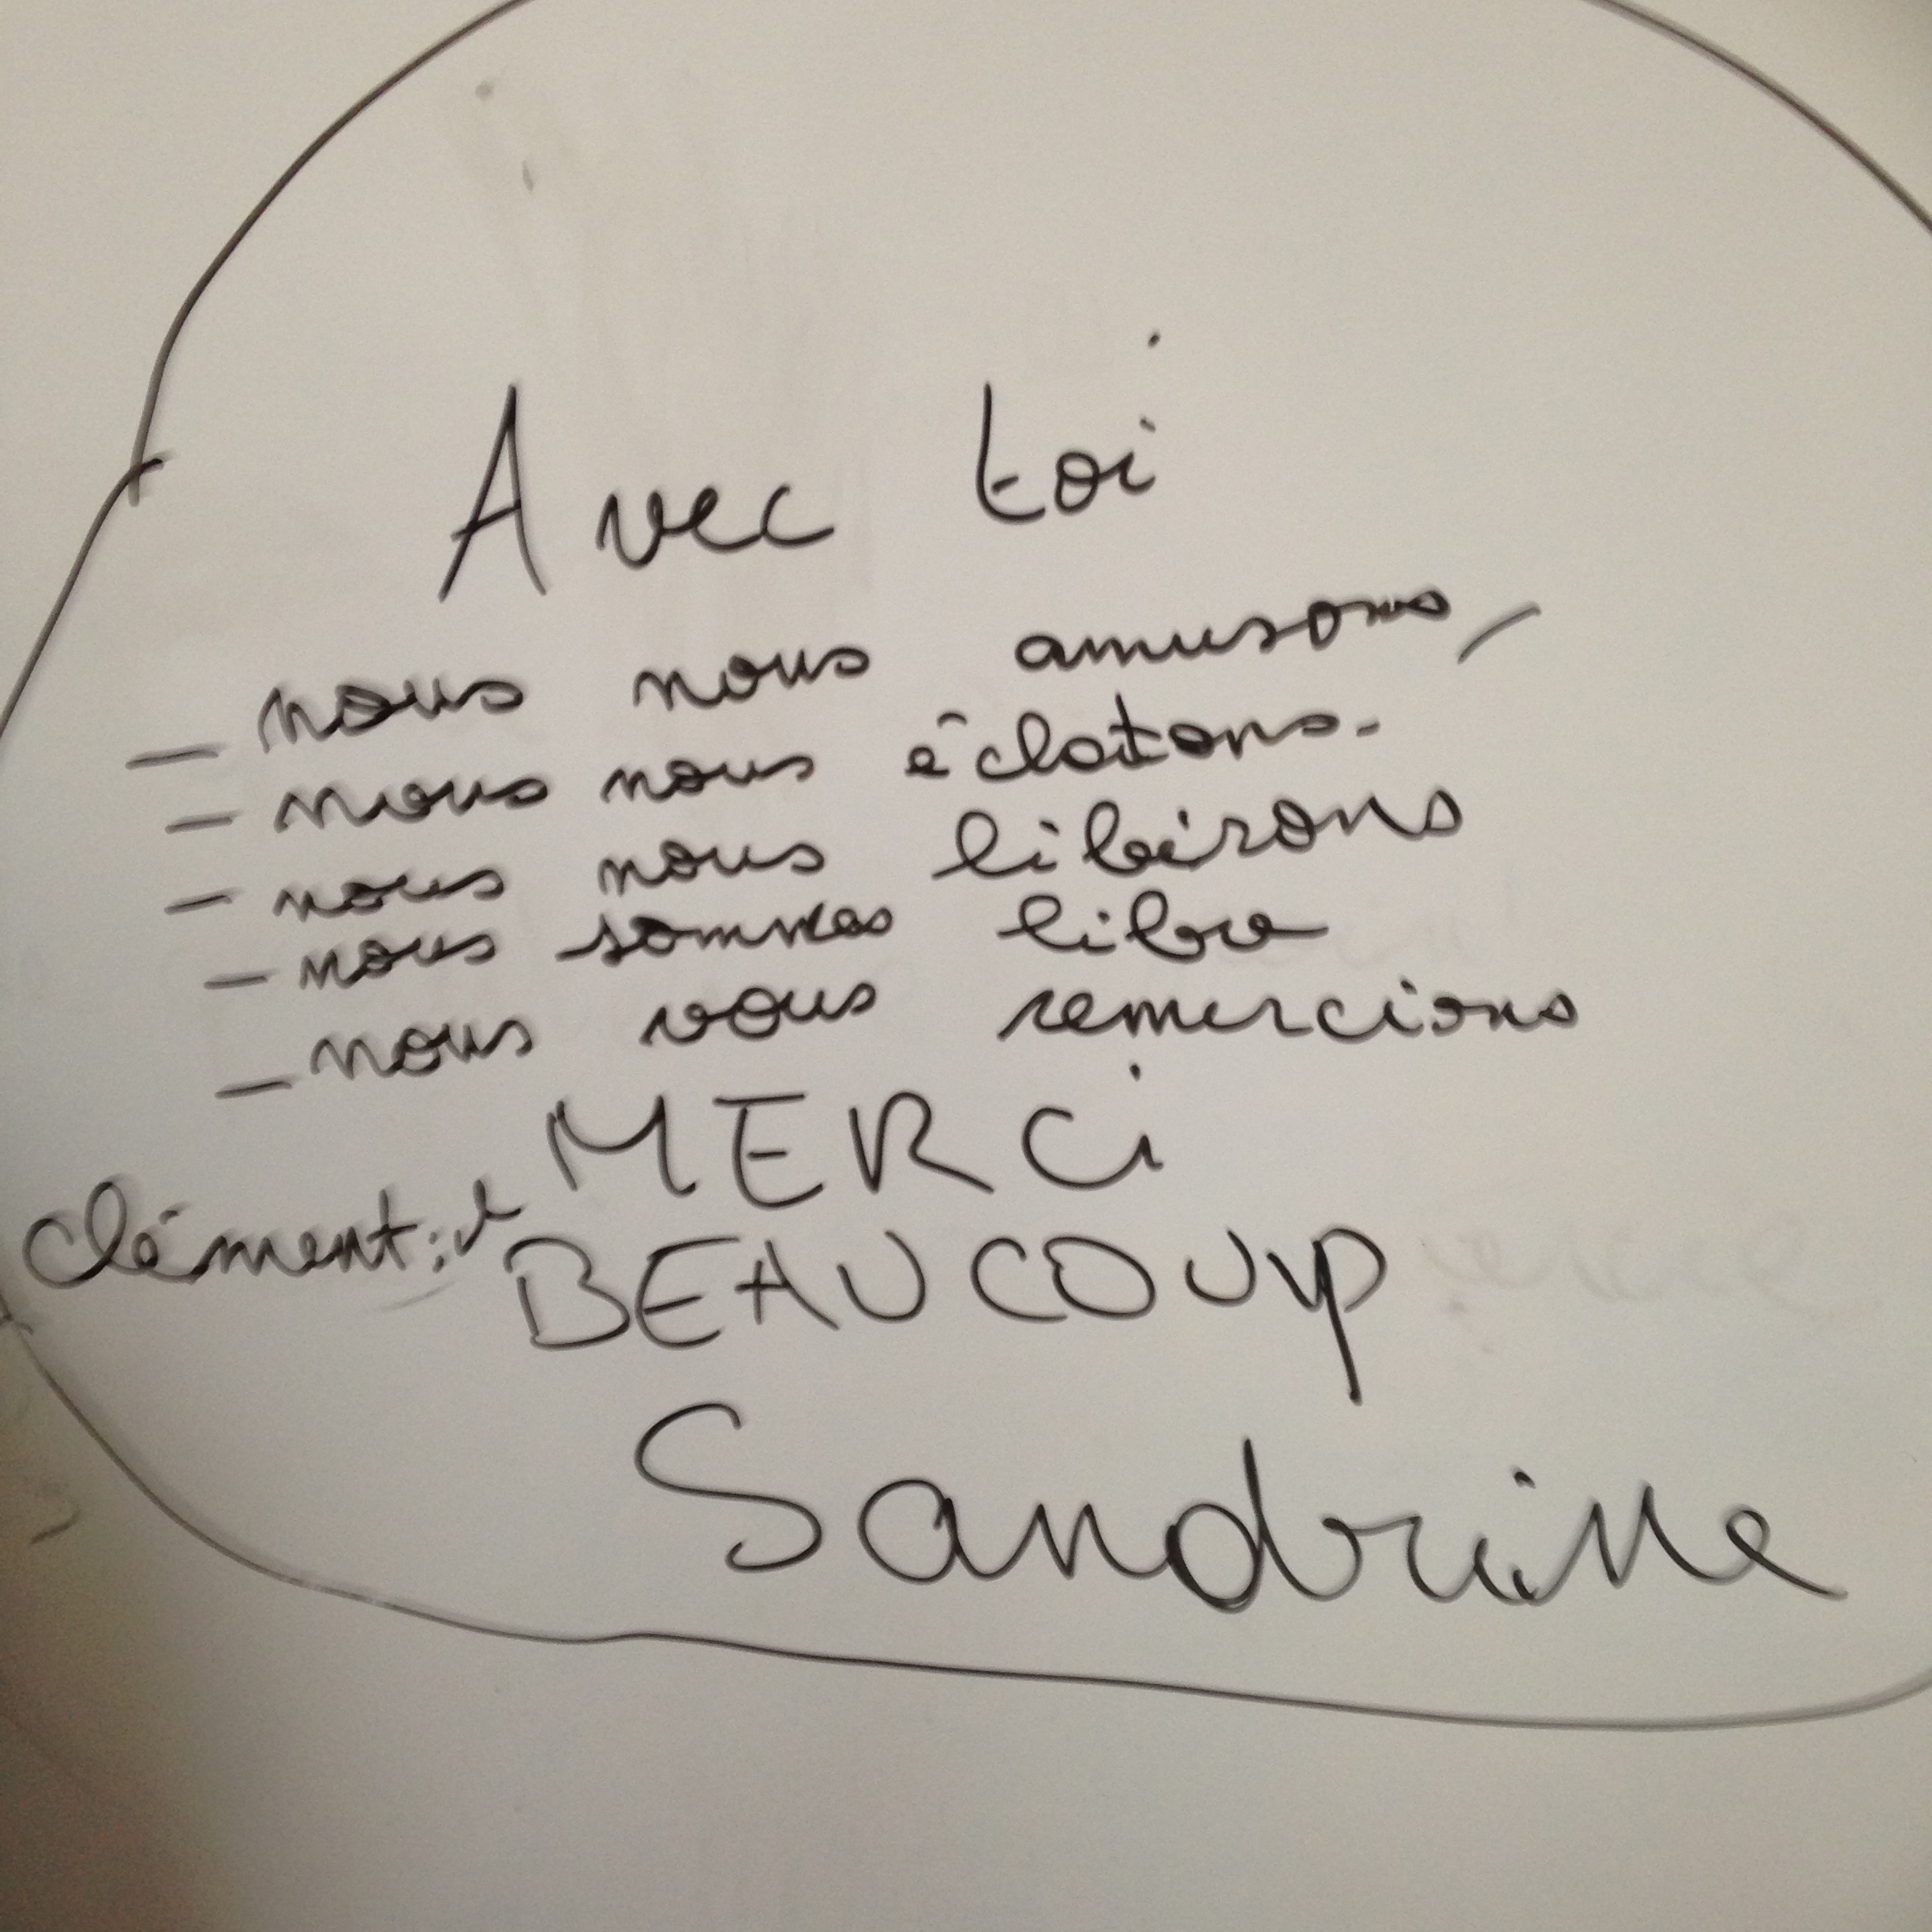 Avec toi
- nous nous amusons,
- nous nous éclatons.
- nous nous libérons
- nous sommes libre
- nous vous remercions
MERCi
BEAUCOUP
Sandrine